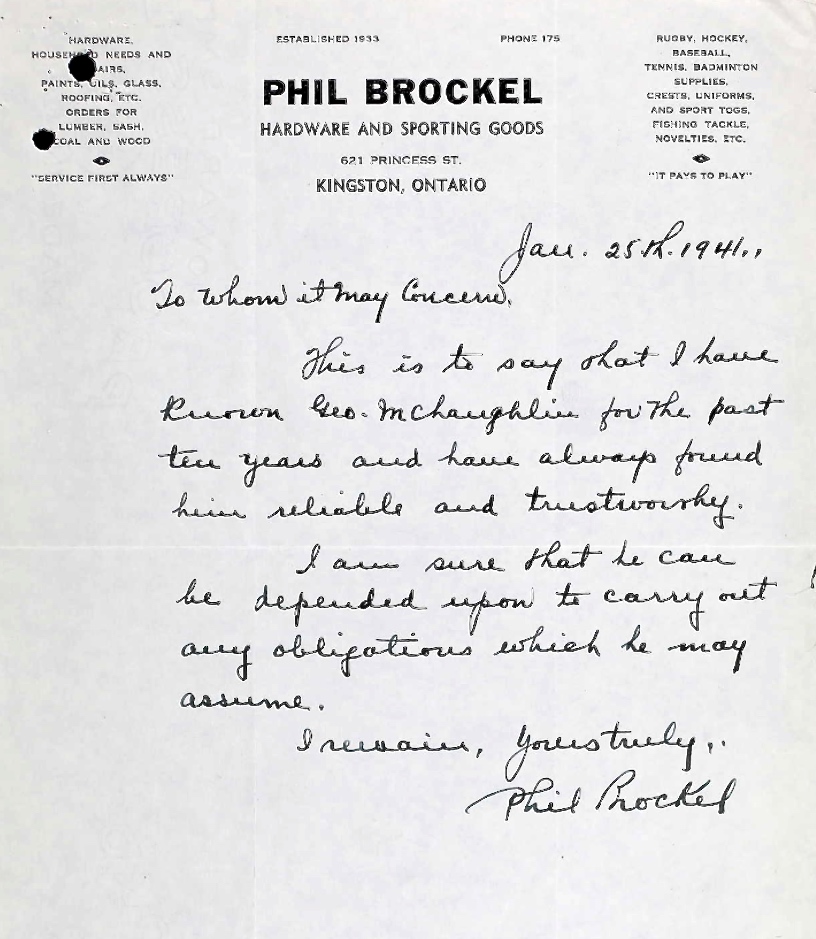 HARDWARE,
HOUSEHOLD NEEDS AND
PAINTS, OILS, GLASS,
ROOFING, ETC.
ORDERS FOR
LUMBER, SASH,
COAL AND WOOD
"SERVICE FIRST ALWAYS"
ESTABLISHED 1933 PHONE 175
PHIL BROCKEL
HARDWARE AND SPORTING GOODS
621 PRINCESS ST.
KINGSTON, ONTARIO
RUGBY, HOCKEY,
BASEBALL,
TENNIS, BADMINTON
SUPPLIES,
CRESTS, UNIFORMS,
AND SPORT TOGS,
FISHING TACKLE,
NOVELTIES, ETC.
"IT PAYS TO PLAY"
Jan. 25th. 1941.,
To Whom it May Concern,
This is to say that I have
known Geo. McLaughlin for the past
ten years and have always found
him reliable and trustworthy.
I am sure that he can
be depended upon to carry out
any obligations which he may
assume.
I remain, Yours truly,.
Phil Brockel